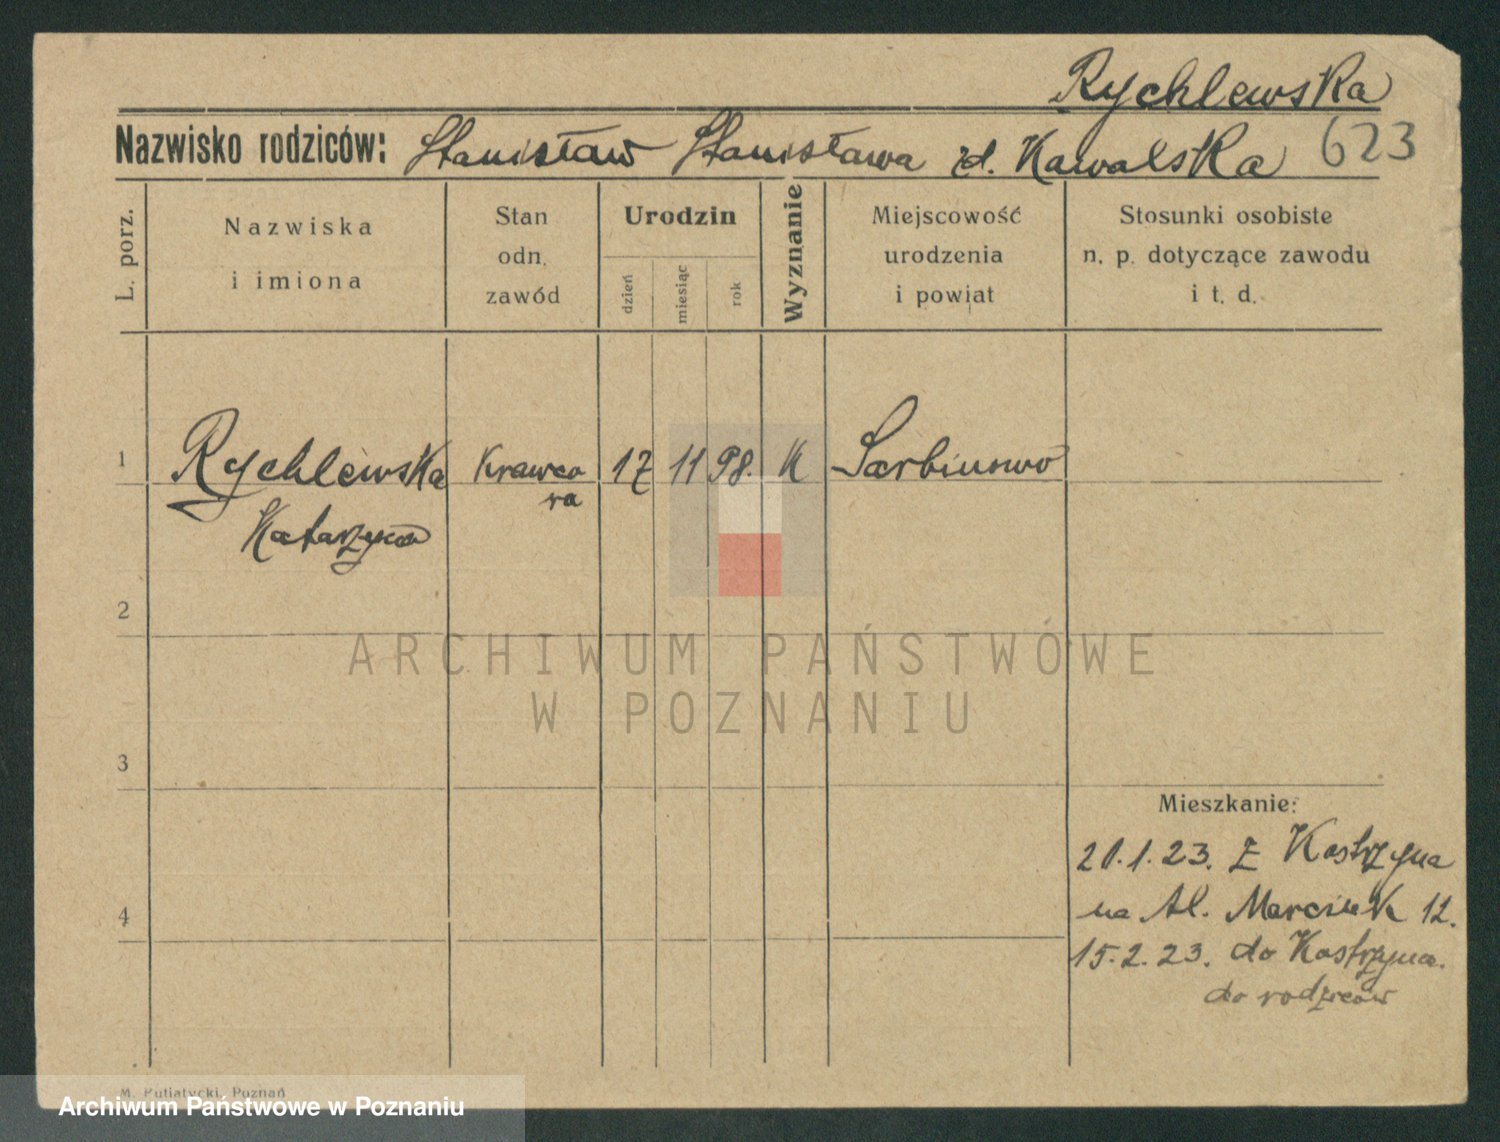 Rychlewska
Nazwisko rodziców: Stanisław Stanisława zd. Kawalska 623
L. porz.
Nazwiska
i imiona
Stan
odn.
zawód
Urodzin
dzień
miesiąc
rok
Wyznanie
Miejscowość
urodzenia
i powiat
Stosunki osobiste
n. p. dotyczące zawodu
i t. d.
1 Rychlewska krawco 17 11 98. K Sarbinowo
ra
Katarzyna
2
ARCHIWUM PAŃSTWOWE
W POZNANIU
3
Mieszkanie:
21.1.23. z Kostrzyna
4 na Al. Marcink 12.
15.2.23. do Kostrzyna.
do rodziców
M. Putiatycki, Poznań
Archiwum Państwowe w Poznaniu